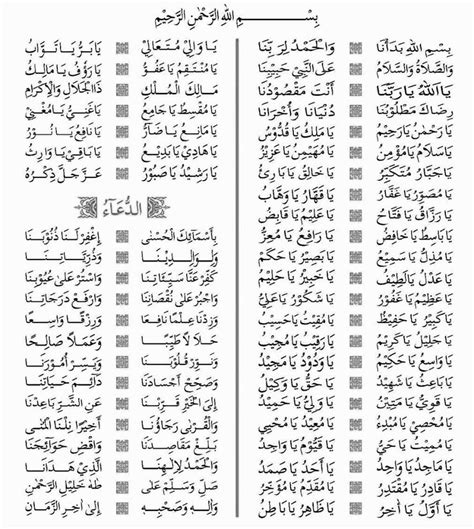 بِسْمِ اللهِ الرَّحْمٰنِ الرَّحِيْمِ
بِسْمِ اللهِ بَدَأْنَا وَالْحَمْدُ لِرَبِّنَا
وَالصَّلَاةُ وَالسَّلَامُ عَلَى النَّبِيِّ حَبِيْبِنَا
يَا اَللهُ يَا رَبَّنَا أَنْتَ مَقْصُوْدُنَا
رِضَاكَ مَطْلُوْبُنَا دُنْيَانَا وَأُخْرَانَا
يَا رَحْمٰنُ يَا رَحِيْمُ يَا مَلِكُ يَا قُدُّوْسُ
يَا سَلَامُ يَا مُؤْمِنُ يَا مُهَيْمِنُ يَا عَزِيْزُ
يَا جَبَّارُ يَا مُتَكَبِّرُ يَا خَالِقُ يَا بَارِئُ
يَا مُصَوِّرُ يَا غَفَّارُ يَا قَهَّارُ يَا وَهَّابُ
يَا رَزَّاقُ يَا فَتَّاحُ يَا عَلِيْمُ يَا قَابِضُ
يَا بَاسِطُ يَا خَافِضُ يَا رَافِعُ يَا مُعِزُّ
يَا مُذِلُّ يَا سَمِيْعُ يَا بَصِيْرُ يَا حَكَمُ
يَا عَدْلُ يَا لَطِيْفُ يَا خَبِيْرُ يَا حَلِيْمُ
يَا عَظِيْمُ يَا غَفُوْرُ يَا شَكُوْرُ يَا عَلِيُّ
يَا كَبِيْرُ يَا حَفِيْظُ يَا مُقِيْتُ يَا حَسِيْبُ
يَا رَقِيْبُ يَا مُجِيْبُ
يَا وَاسِعُ يَا حَكِيْمُ يَا وَدُوْدُ يَا مَجِيْدُ
يَا بَاعِثُ يَا شَهِيْدُ يَا حَقُّ يَا وَكِيْلُ
يَا قَوِيُّ يَا مَتِيْنُ يَا وَلِيُّ يَا حَمِيْدُ
يَا مُحْصِيْ يَا مُبْدِئُ يَا مُعِيْدُ يَا مُحْيِيْ
يَا مُمِيْتُ يَا حَيُّ يَا قَيُّوْمُ يَا وَاجِدُ
يَا مَاجِدُ يَا وَاحِدُ يَا أَحَدُ يَا صَمَدُ
يَا قَادِرُ يَا مُقْتَدِرُ يَا مُقَدِّمُ يَا مُؤَخِّرُ
يَا أَوَّلُ يَا آخِرُ يَا ظَاهِرُ يَا بَاطِنُ
يَا وَالِيْ يَا مُتَعَالِيْ يَا بَرُّ يَا تَوَّابُ
يَا مُنْتَقِمُ يَا عَفُوُّ يَا رَؤُفُ يَا مَالِكُ
مَالِكَ الْمُلْكِ ذَا الْجَلَالِ وَالْاِكْرَامِ
يَا مُقْسِطُ يَا جَامِعُ يَا غَنِيُّ يَا مُغْنِيْ
يَا مَانِعُ يَا ضَآرُّ يَا نَافِعُ يَا نُوْرُ
يَا هَادِيْ يَا بَدِيْعُ يَا بَاقِيْ يَا وَارِثُ
يَا رَشِيْدُ يَا صَبُوْرُ عَزَّ جَلَّ ذِكْرُهُ
الدُّعَآءُ
بِأَسْمَائِكَ الْحُسْنٰى اِغْفِرْ لَنَا ذُنُوْبَنَا
وَلِوَالِدِيْنَا وَذُرِّيَّاتِنَا
كَفِّرْ عَنَّا سَيِّئَاتِنَا وَاسْتُرْ عَلٰى عُيُوْبِنَا
وَاجْبُرْ عَلٰى نُقْصَانِنَا وَارْفَعْ دَرَجَاتِنَا
وَزِدْنَا عِلْمًا نَافِعًا وَرِزْقًا وَاسِعًا
حَلَالًا طَيِّبًا وَعَمَلًا صَالِحًا
وَنَوِّرْ قُلُوْبَنَا وَيَسِّرْ أُمُوْرَنَا
وَصَحِّحْ أَجْسَادَنَا دَائِمَ حَيَاتِنَا
إِلَى الْخَيْرِ قَرِّبْنَا عَنِ الشَّرِّ بَاعِدْنَا
وَالْقُرْبٰى رَجَاؤُنَا أَخِيْرًا نِلْنَا الْمُنٰى
بَلِّغْ مَقَاصِدَنَا وَاقْضِ حَوَآئِجَنَا
وَالْحَمْدُ لِإِلٰهِنَا الَّذِيْ هَدَانَا
صَلِّ وَسَلِّمْ عَلٰى طٰهٰ خَلِيْلِ الرَّحْمٰنِ
وَآلِهِ وَصَحْبِهِ إِلٰى آخِرِ الزَّمَانِ